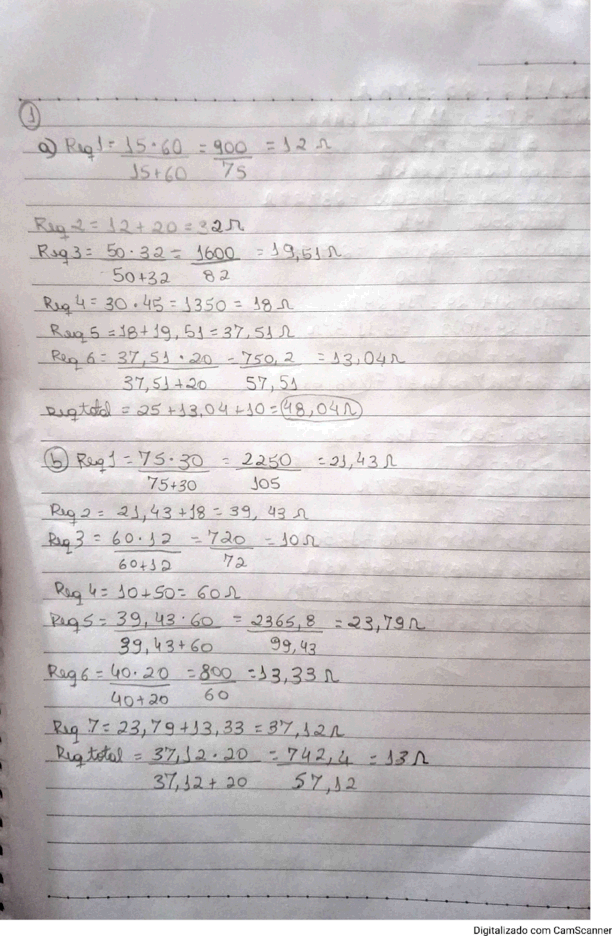 1
a) Req 1 = 15 · 60 = 900 = 12 Ω
15+60 75
Req 2 = 12 + 20 = 32 Ω
Req 3 = 50 · 32 = 1600 = 19,51 Ω
50+32 82
Req 4 = 30 · 45 = 1350 = 18 Ω
Req 5 = 18 + 19,51 = 37,51 Ω
Req 6 = 37,51 · 20 = 750,2 = 13,04 Ω
37,51+20 57,51
Req total = 25 + 13,04 + 10 = 48,04 Ω
b) Req 1 = 75 · 30 = 2250 = 21,43 Ω
75+30 105
Req 2 = 21,43 + 18 = 39,43 Ω
Req 3 = 60 · 12 = 720 = 10 Ω
60+12 72
Req 4 = 10 + 50 = 60 Ω
Req 5 = 39,43 · 60 = 2365,8 = 23,79 Ω
39,43 + 60 99,43
Req 6 = 40 · 20 = 800 = 13,33 Ω
40+20 60
Req 7 = 23,79 + 13,33 = 37,12 Ω
Req total = 37,12 · 20 = 742,4 = 13 Ω
37,12 + 20 57,12
Digitalizado com CamScanner